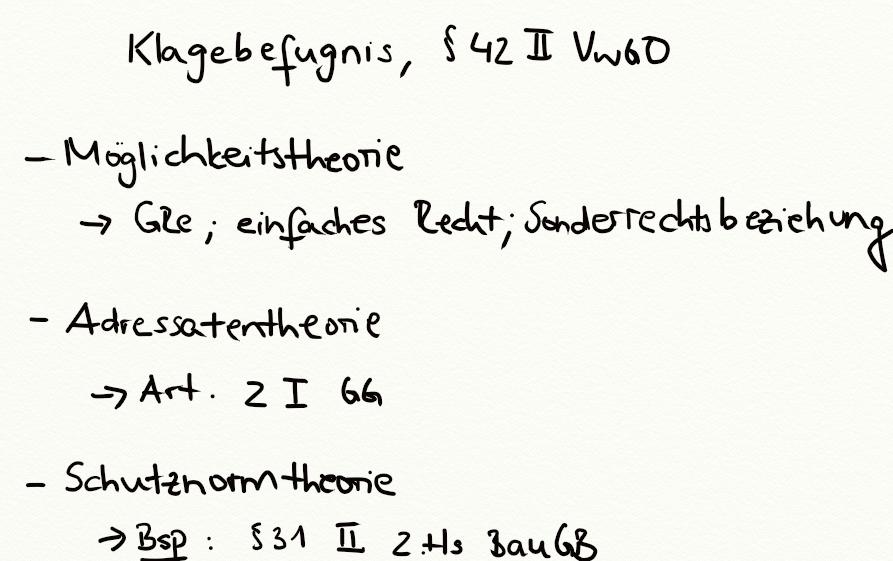 Klagebefugnis, § 42 II VwGO
- Möglichkeitstheorie
→ GRe ; einfaches Recht ; Sonderrechtsbeziehung
- Adressatentheorie
→ Art. 2 I GG
- Schutznormtheorie
→ Bsp : § 31 II 2.Hs BauGB